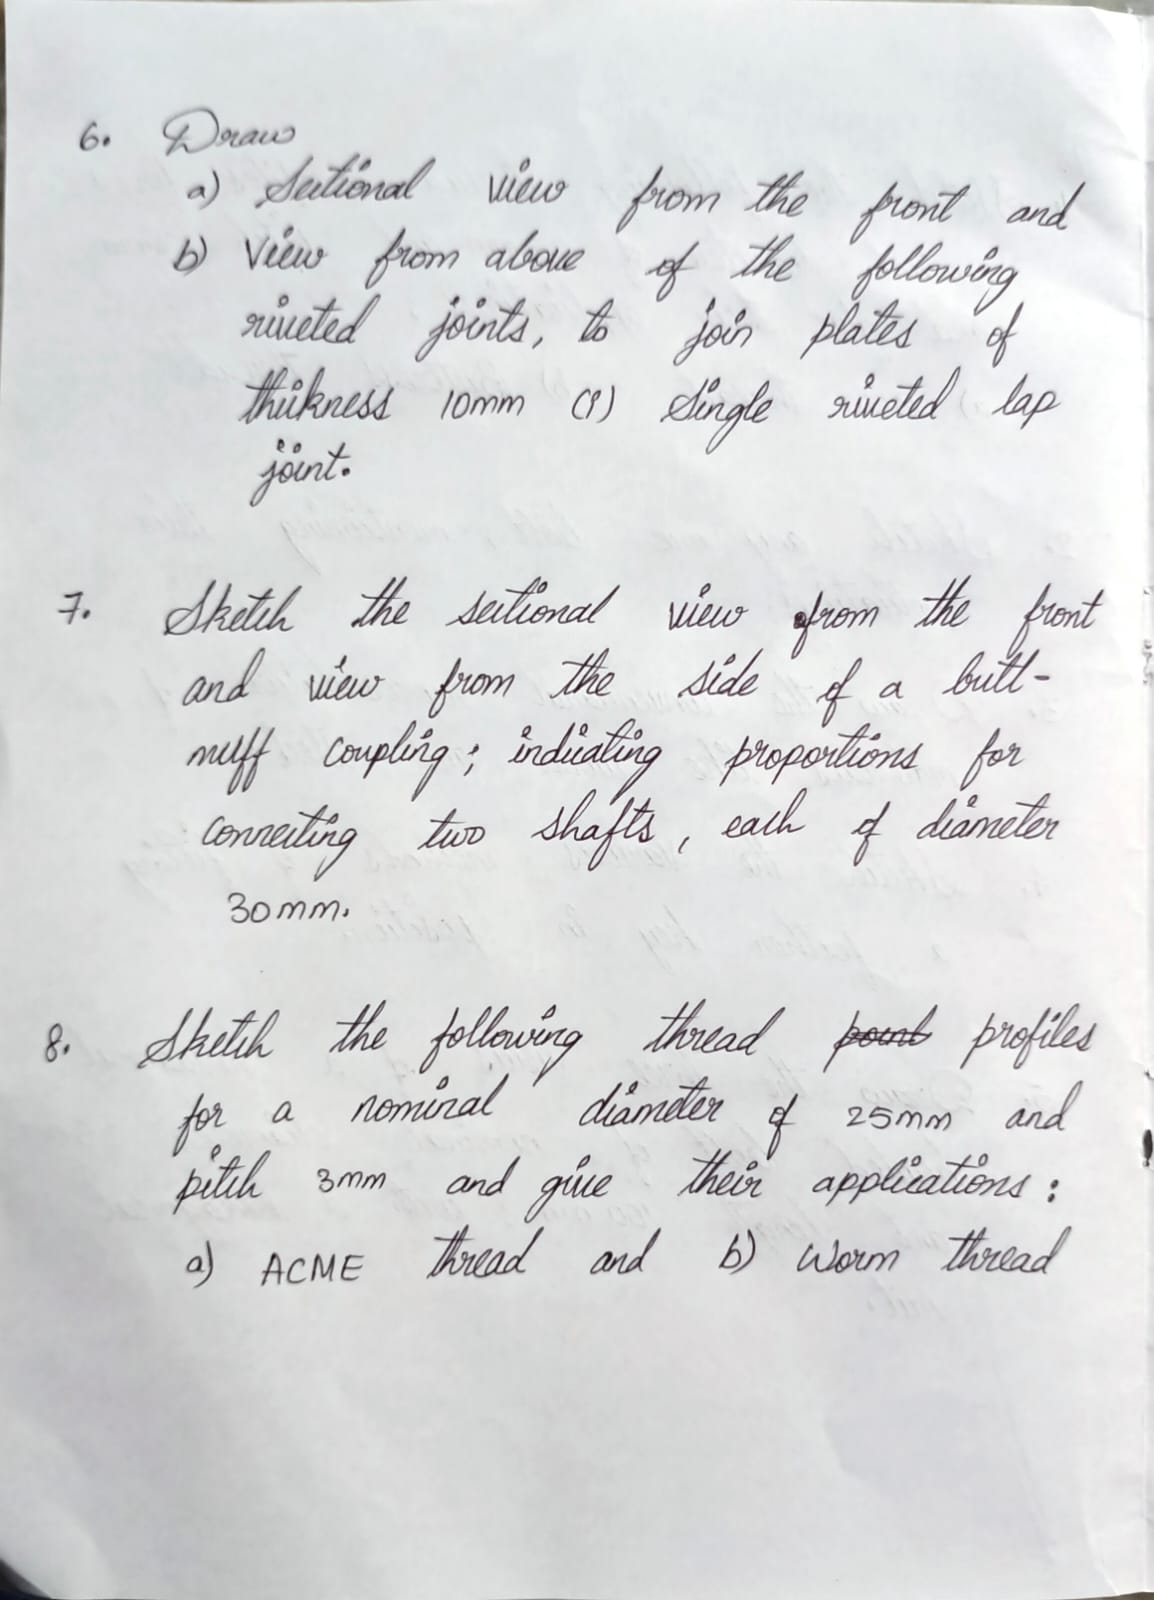 6. Draw
a) Sectional view from the front and
b) View from above of the following
riveted joints, to join plates of
thickness 10mm (i) Single riveted lap
joint.
7. Sketch the sectional view from the front
and view from the side of a butt-
muff coupling; indicating proportions for
connecting two shafts, each of diameter
30mm.
8. Sketch the following thread point profiles
for a nominal diameter of 25mm and
pitch 3mm and give their applications:
a) ACME thread and b) Worm thread